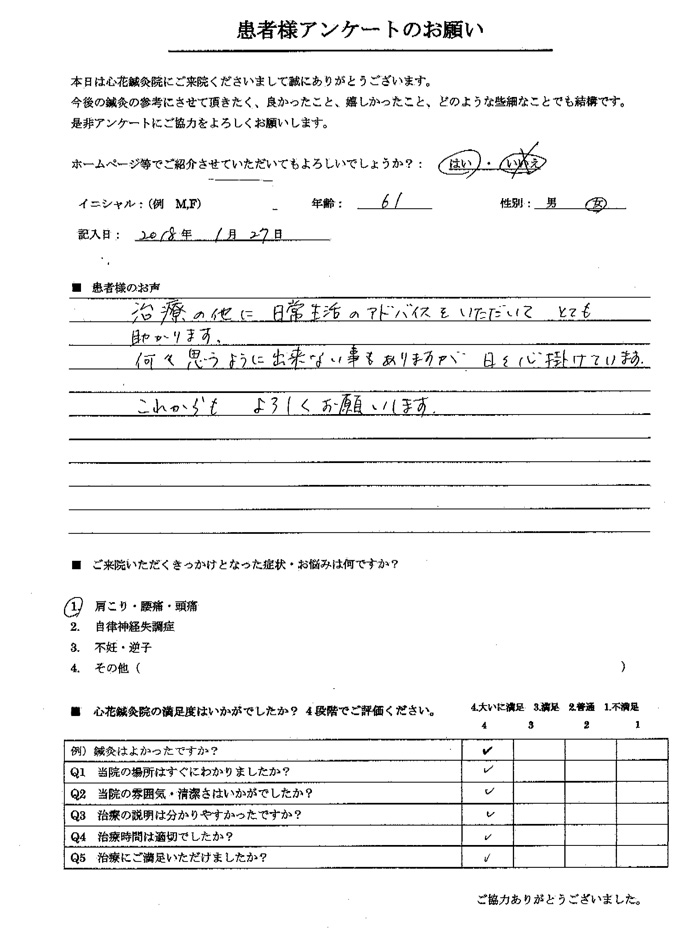 患者様アンケートのお願い
本日は心花鍼灸院にご来院くださいまして誠にありがとうございます。
今後の鍼灸の参考にさせて頂きたく、良かったこと、嬉しかったこと、どのような些細なことでも結構です。
是非アンケートにご協力をよろしくお願いします。
ホームページ等でご紹介させていただいてもよろしいでしょうか?: はい ・ いいえ
イニシャル:(例 M,F) 年齢: 61 性別: 男 女
記入日: 2018年 1月 27日
■ 患者様のお声
治療の他に 日常生活のアドバイスをいただいて とても
助かります。
何々思うように出来ない事もありますが 日々心掛けています。
これからも よろしくお願いします。
■ ご来院いただくきっかけとなった症状・お悩みは何ですか?
1. 肩こり・腰痛・頭痛
2. 自律神経失調症
3. 不妊・逆子
4. その他( )
■ 心花鍼灸院の満足度はいかがでしたか? 4段階でご評価ください。 4.大いに満足 3.満足 2.普通 1.不満足
4 3 2 1
例)鍼灸はよかったですか? ✓
Q1 当院の場所はすぐにわかりましたか? ✓
Q2 当院の雰囲気・清潔さはいかがでしたか? ✓
Q3 治療の説明は分かりやすかったですか? ✓
Q4 治療時間は適切でしたか? ✓
Q5 治療にご満足いただけましたか? ✓
ご協力ありがとうございました。